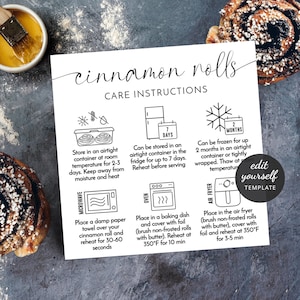 cinnamon rolls
CARE INSTRUCTIONS
3
DAYS
2
MONTHS
Store in an airtight
container at room
temperature for 2-3
days. Keep away from
moisture and heat
Can be stored in an
airtight container in the
fridge for up to 7 days.
Reheat before serving
Can be frozen for up
2 months in an airtight
container or tightly
wrapped. Thaw at
temperature
edit
yourself
TEMPLATE
MICROWAVE
OVEN
AIR FRYER
Place a damp paper
towel over your
cinnamon roll and
reheat for 30-60
seconds
Place in a baking dish
and cover with foil
(brush non-frosted rolls
with butter). Reheat at
350°F for 10 min
Place in the air fryer
(brush non-frosted rolls
with butter), cover with
foil and reheat at 350°F
for 3-5 min